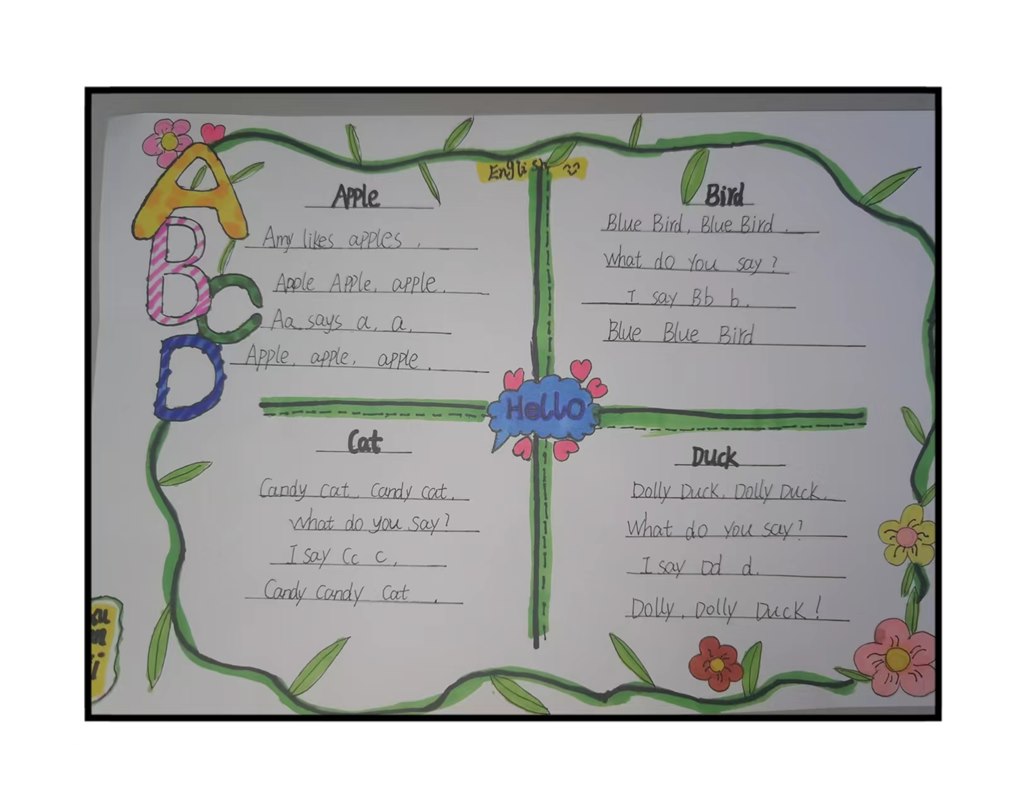 English
A
B
C
D
Apple
Amy likes apples .
Apple Apple, apple.
Aa says a, a.
Apple, apple, apple.
Bird
Blue Bird, Blue Bird .
What do You say ?
I say Bb b.
Blue Blue Bird
Hello
Cat
Candy cat, Candy cat.
What do you say?
I say Cc c.
Candy Candy Cat .
Duck
Dolly Duck, Dolly Duck.
What do you say?
I say Dd d.
Dolly, Dolly Duck!